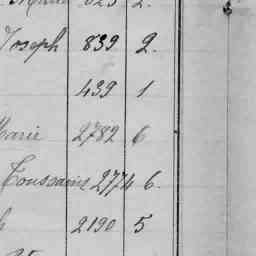 Joseph 839 2.
439 1
Marie 2782 6
Toussaint 2774 6.
h 2190 5